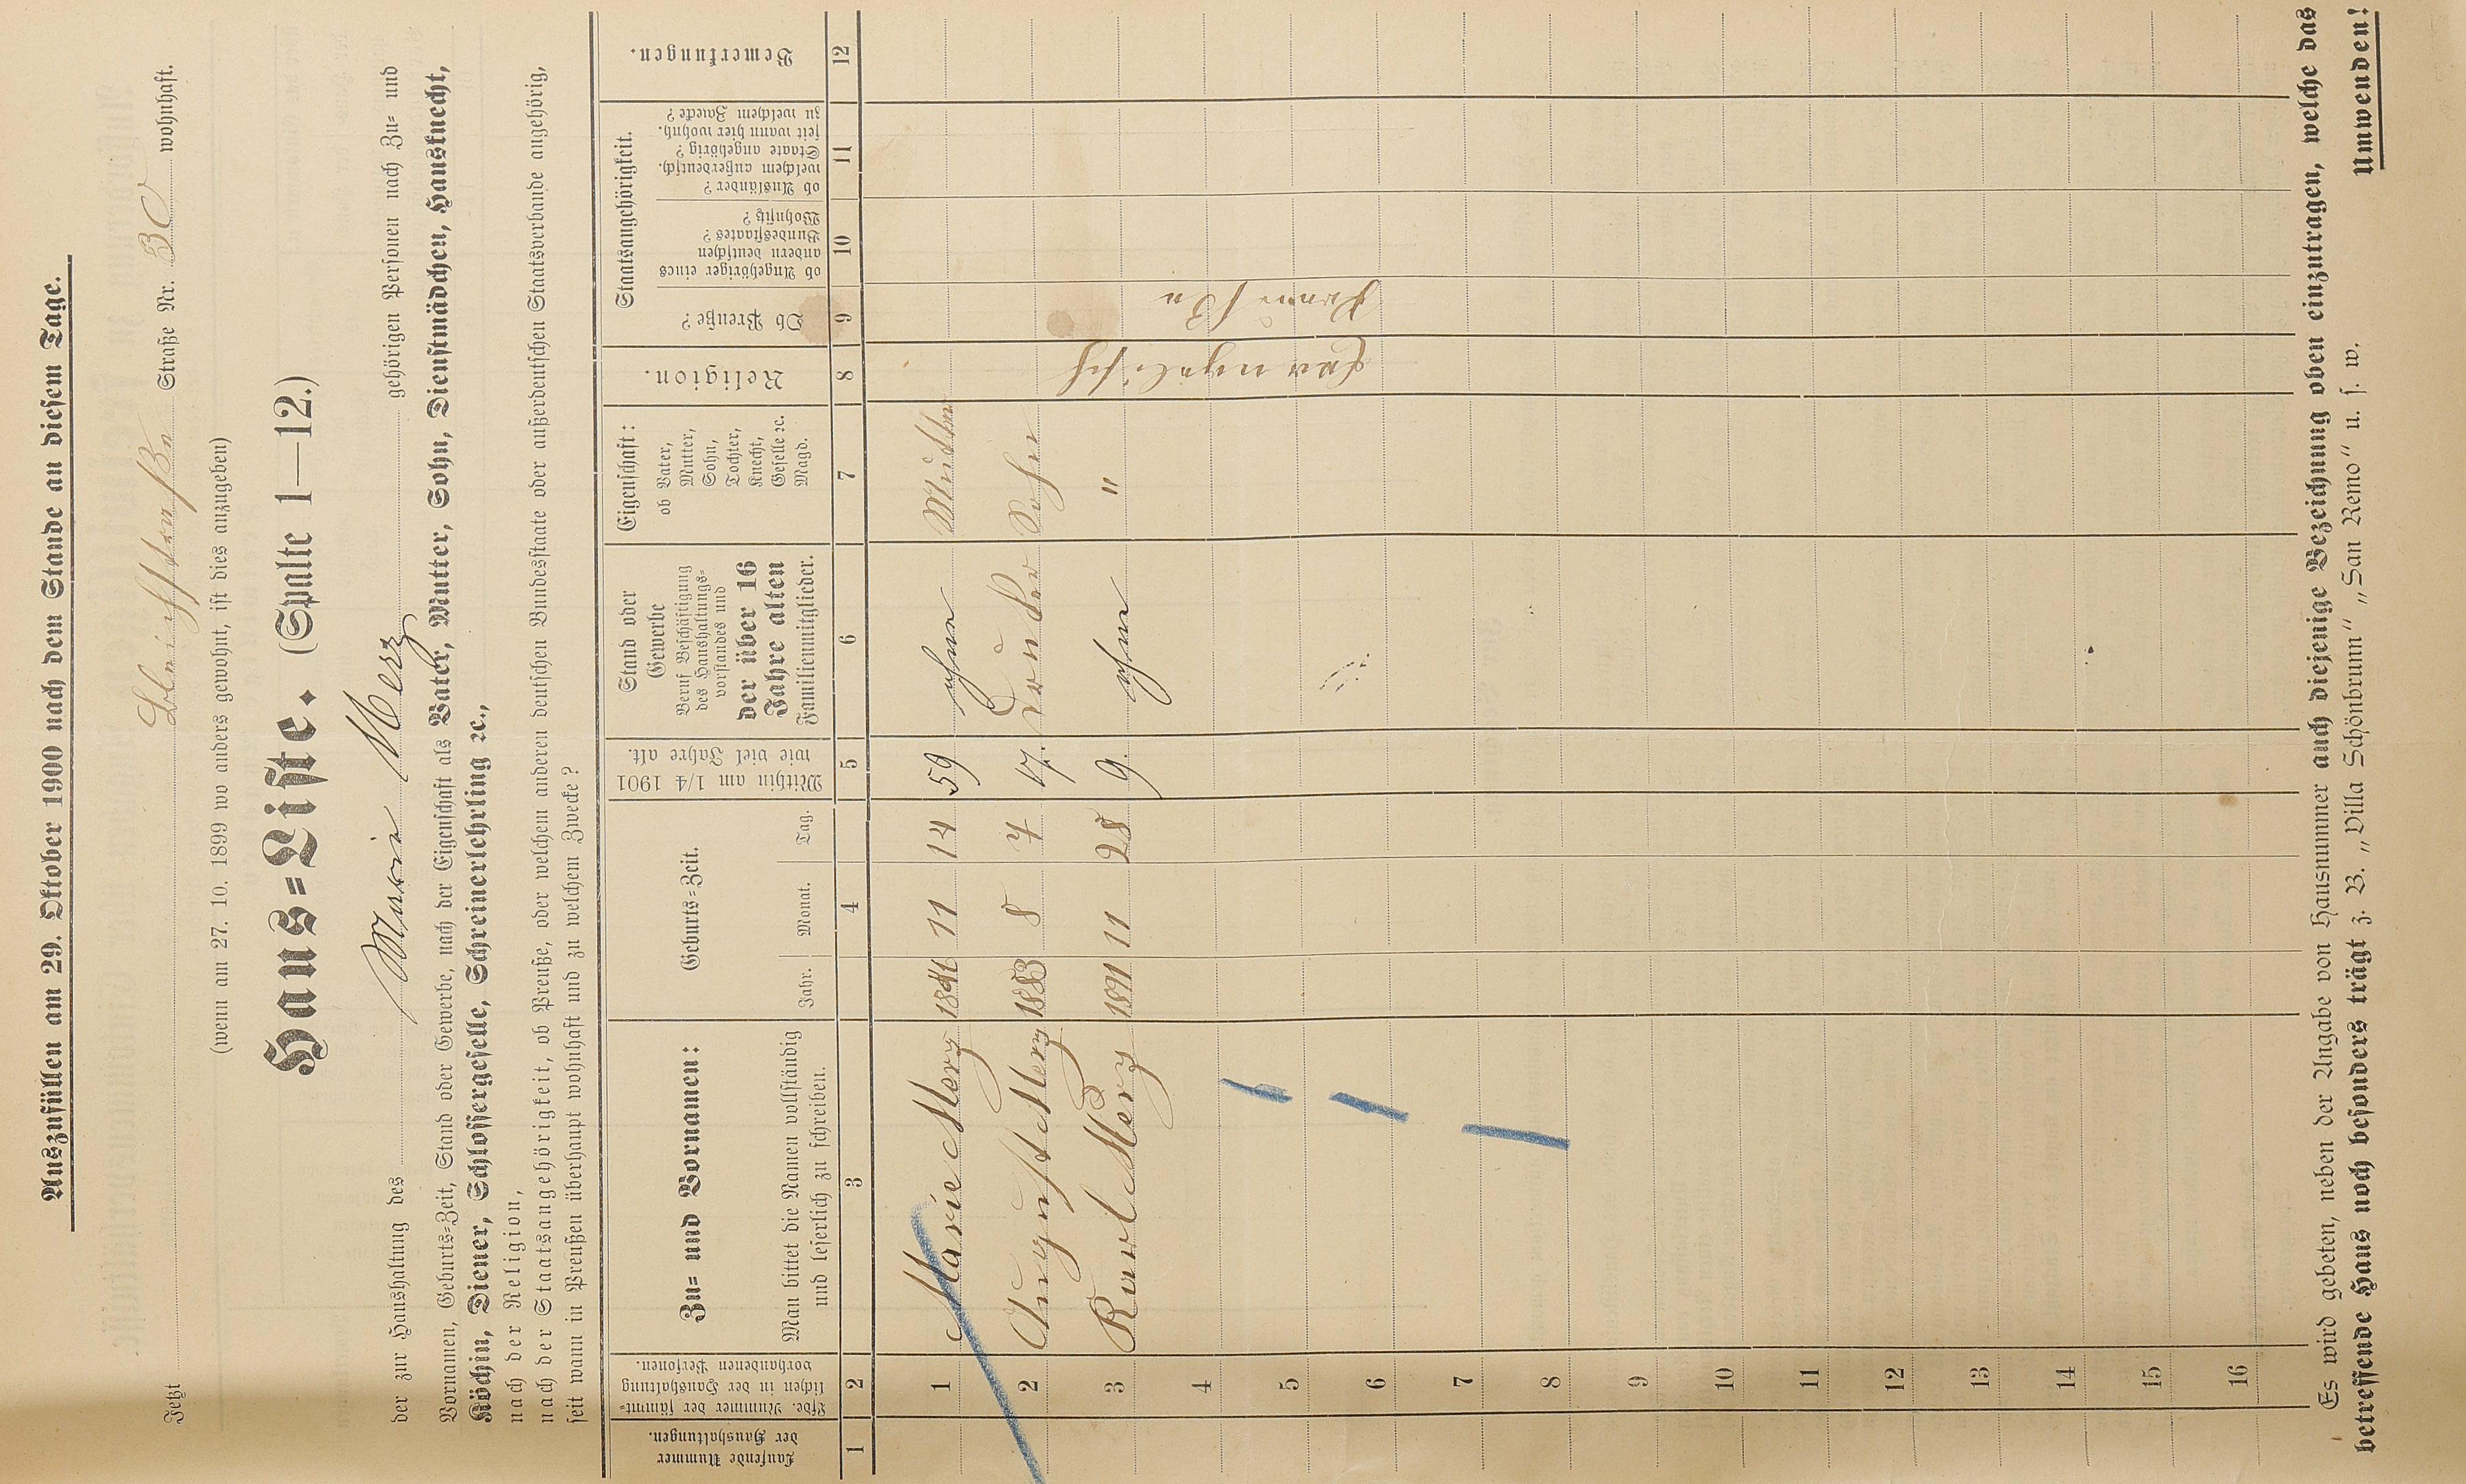 Auszufüllen am 29. Oktober 1900 nach dem Stande an diesem Tage.
Jetzt Bleichstraße Straße Nr. 30 wohnhaft.
(wenn am 27. 10. 1899 wo anders gewohnt, ist dies anzugeben)
Haus=Liste. (Spalte 1—12.)
der zur Haushaltung des Marie Merz gehörigen Personen nach Zu= und
Vornamen, Geburts=Zeit, Stand oder Gewerbe, nach der Eigenschaft als Vater, Mutter, Sohn, Dienstmädchen, Hausknecht,
Köchin, Diener, Schlossergeselle, Schreinerlehrling ꝛc.,
nach der Religion,
nach der Staatsangehörigkeit, ob Preuße, oder welchem anderen deutschen Bundesstaate oder außerdeutschen Staatsverbande angehörig,
seit wann in Preußen überhaupt wohnhaft und zu welchem Zwecke?
Laufende Nummer der Haushaltungen.
Lfde. Nummer der sämmt=
lichen in der Haushaltung
vorhandenen Personen.
Zu= und Vornamen:
Man bittet die Namen vollständig
und leserlich zu schreiben.
Geburts=Zeit.
Jahr. Monat. Tag.
Mithin am 1/4 1901
wie viel Jahre alt.
Stand oder
Gewerbe
Beruf Beschäftigung
des Haushaltungs=
vorstandes und
der über 16
Jahre alten
Familienmitglieder.
Eigenschaft:
ob Vater,
Mutter,
Sohn,
Tochter,
Knecht,
Geselle ꝛc.
Magd.
Religion.
Staatsangehörigkeit.
Ob Preuße?
ob Angehöriger eines
andern deutschen
Bundesstaates?
Wohnsitz?
ob Ausländer?
welchem außerdeutsch.
Staate angehörig?
seit wann hier wohnh.
zu welchem Zwecke?
Bemerkungen.
1 2 3 4 5 6 7 8 9 10 11 12
1 Marie Merz 1841 11 14 59 ohne Mutter
2 August Merz 1883 8 7 17. Drucker Sohn
3 Karl Merz 1891 11 28 9. ohne "
Evangelisch
Preußen
4
5
6
7
8
9
10
11
12
13
14
15
16
Es wird gebeten, neben der Angabe von Hausnummer auch diejenige Bezeichnung oben einzutragen, welche das
betreffende Haus noch besonders trägt z. B. „Villa Schönbrunn" „San Remo" u. s. w.
Umwenden!